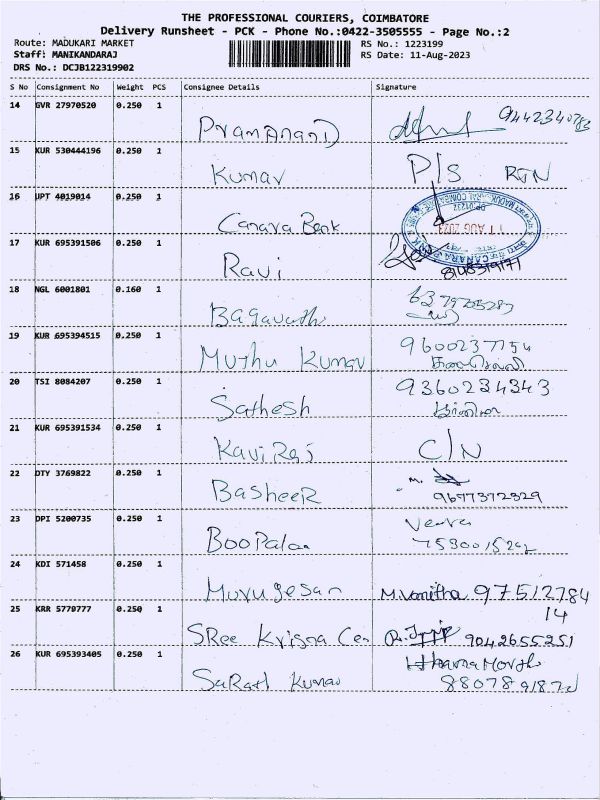 THE PROFESSIONAL COURIERS, COIMBATORE
Delivery Runsheet - PCK - Phone No.:0422-3505555 - Page No.:2
Route: MADUKARI MARKET RS No.: 1223199
Staff: MANIKANDARAJ RS Date: 11-Aug-2023
DRS No.: DCJB122319902
S No Consignment No Weight PCS Consignee Details Signature
14 GVR 27970520 0.250 1
15 KUR 530444196 0.250 1
Kumar P/s RTN
16 UPT 4019014 0.250 1
Canara Bank
11 AUG 2023
17 KUR 695391506 0.250 1
Ravi 8148319171
18 NGL 6001801 0.160 1
Bagavath
19 KUR 695394515 0.250 1
Muthu Kumar 9600237754
20 TSI 8084207 0.250 1
Sathesh 9360234343
21 KUR 695391534 0.250 1
KaviRaj C/N
22 DTY 3769822 0.250 1
BasheeR 9677372329
23 DPI 5200735 0.250 1
BooPalan
24 KDI 571458 0.250 1
Murugesan M.Vanitha 97512784
14
25 KRR 5779777 0.250 1
SRee Krisna Cen 9042655251
26 KUR 695393405 0.250 1
SaRath Kumar